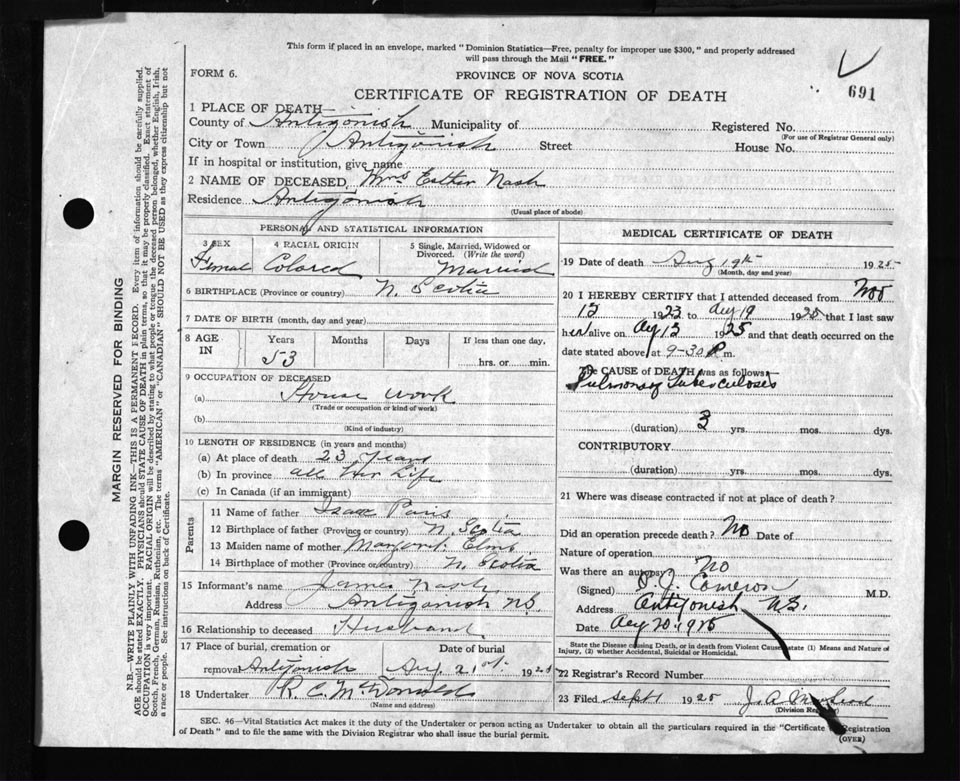 This form if placed in an envelope, marked "Dominion Statistics—Free, penalty for improper use $300," and properly addressed
will pass through the Mail "FREE."
FORM 6.
PROVINCE OF NOVA SCOTIA
CERTIFICATE OF REGISTRATION OF DEATH
691
1 PLACE OF DEATH—
County of Antigonish Municipality of
Registered No.
(For use of Registrar General only)
City or Town Antigonish Street House No.
If in hospital or institution, give name
2 NAME OF DECEASED, Mrs Esther Nash
Residence Antigonish
(Usual place of abode)
PERSONAL AND STATISTICAL INFORMATION
3 SEX
Female
4 RACIAL ORIGIN
Colored
5 Single, Married, Widowed or
Divorced. (Write the word)
Married
6 BIRTHPLACE (Province or country) N. Scotia
7 DATE OF BIRTH (month, day and year)
8 AGE IN
Years Months Days If less than one day,
53 hrs. or min.
9 OCCUPATION OF DECEASED
(a) House work
(Trade or occupation or kind of work)
(b)
(Kind of industry)
10 LENGTH OF RESIDENCE (in years and months)
(a) At place of death 23 years
(b) In province all Her Life
(c) In Canada (if an immigrant)
Parents
11 Name of father Isaac Paris
12 Birthplace of father (Province or country) N. Scotia
13 Maiden name of mother Margaret
14 Birthplace of mother (Province or country) N. Scotia
15 Informant's name James Nash
Address Antigonish NS.
16 Relationship to deceased Husband
17 Place of burial, cremation or
removal Antigonish Aug. 21st. 1925
18 Undertaker R. C. McDonald
(Name and address)
MEDICAL CERTIFICATE OF DEATH
19 Date of death Aug 19th 1925
(Month, day and year)
20 I HEREBY CERTIFY that I attended deceased from Nov
1923 to Aug 19 1925 that I last saw
her alive on Aug 13 1925 and that death occurred on the
date stated above at 9-30 P.m.
The CAUSE OF DEATH was as follows—
Pulmonary Tuberculosis
(duration) 3 yrs. mos. dys.
CONTRIBUTORY
(duration) yrs. mos. dys.
21 Where was disease contracted if not at place of death?
Did an operation precede death? No Date of
Nature of operation
Was there an autopsy No
(Signed) Cameron M.D.
Address Antigonish N.S.
Date Aug 20. 1925
State the Disease causing Death, or in death from Violent Causes state (1) Means and Nature of
Injury, (2) whether Accidental, Suicidal or Homicidal.
22 Registrar's Record Number
23 Filed Sept 1 1925
(Division Registrar)
SEC. 46—Vital Statistics Act makes it the duty of the Undertaker or person acting as Undertaker to obtain all the particulars required in the "Certificate of Registration
of Death" and to file the same with the Division Registrar who shall issue the burial permit.
(OVER)
MARGIN RESERVED FOR BINDING
N.B.—WRITE PLAINLY WITH UNFADING INK—THIS IS A PERMANENT RECORD. Every item of information should be carefully supplied.
AGE should be stated EXACTLY. PHYSICIANS should STATE CAUSE OF DEATH in plain terms, so that it may be properly classified. Exact statement of
OCCUPATION is very important. RACIAL ORIGIN will be described by stating to what people or tongue the deceased person belonged, whether English, Irish,
Scotch, French, German, Russian, Ruthenian, etc. The terms "AMERICAN" or "CANADIAN" SHOULD NOT BE USED as they express citizenship but not
a race or people. See instructions on back of Certificate.